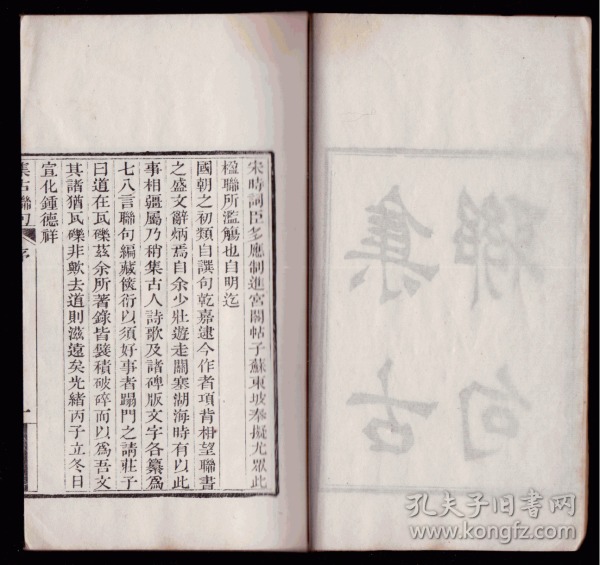 宋時詞臣多應制進宮閣帖子蘇東坡奉擬尤眾此
楹聯所濫觴也自明迄
國朝之初類自譔句乾嘉逮今作者項背相望聯書
之盛文辭炳焉自余少壯遊走關塞湖海時有以此
事相彊屬乃稍集古人詩歌及諸碑版文字各纂為
七八言聯句編藏篋衍以須好事者蹋門之請莊子
曰道在瓦礫茲余所著錄皆襞積破碎而以為吾文
其諸猶瓦礫非歟去道則滋遠矣光緒丙子立冬日
宣化鍾德祥
集古聯句
序
一
集古
聯句
孔夫子旧书网
www.kongfz.com